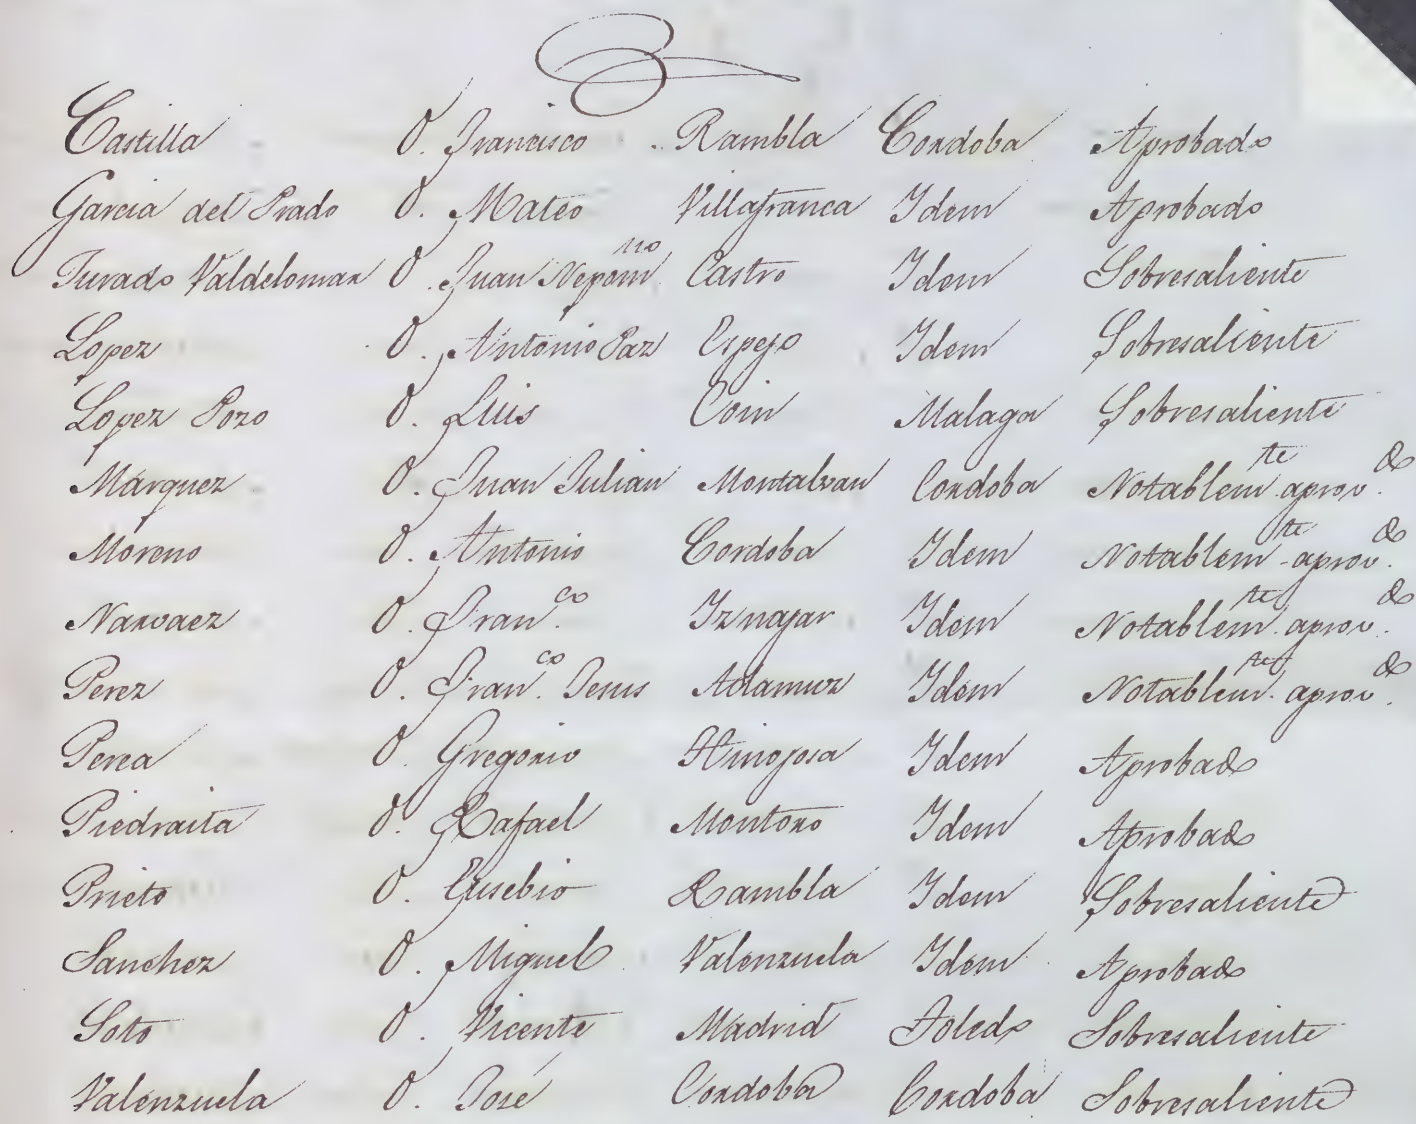 Castilla D. Francisco Rambla Cordoba Aprobado
Garcia del Prado D. Mateo Villafranca Idem Aprobado
Jurado Valdelomar D. Juan Nepom.no Castro Idem Sobresaliente
Lopez D. Antonio Paz Espejo Idem Sobresaliente
Lopez Pozo D. Luis Coin Malaga Sobresaliente
Marquez D. Juan Julian Montalvan Cordoba Notablem.te aprov.do
Moreno D. Antonio Cordoba Idem Notablem.te aprov.do
Narvaez D. Fran.co Iznajar Idem Notablem.te aprov.do
Perez D. Fran.co Jesus Adamuz Idem Notablem.te aprov.do
Perea D. Gregorio Hinojosa Idem Aprobado
Piedraita D. Rafael Montoro Idem Aprobado
Prieto D. Eusebio Rambla Idem Sobresaliente
Sanchez D. Miguel Valenzuela Idem Aprobado
Soto D. Vicente Madrid Toledo Sobresaliente
Valenzuela D. José Cordoba Cordoba Sobresaliente